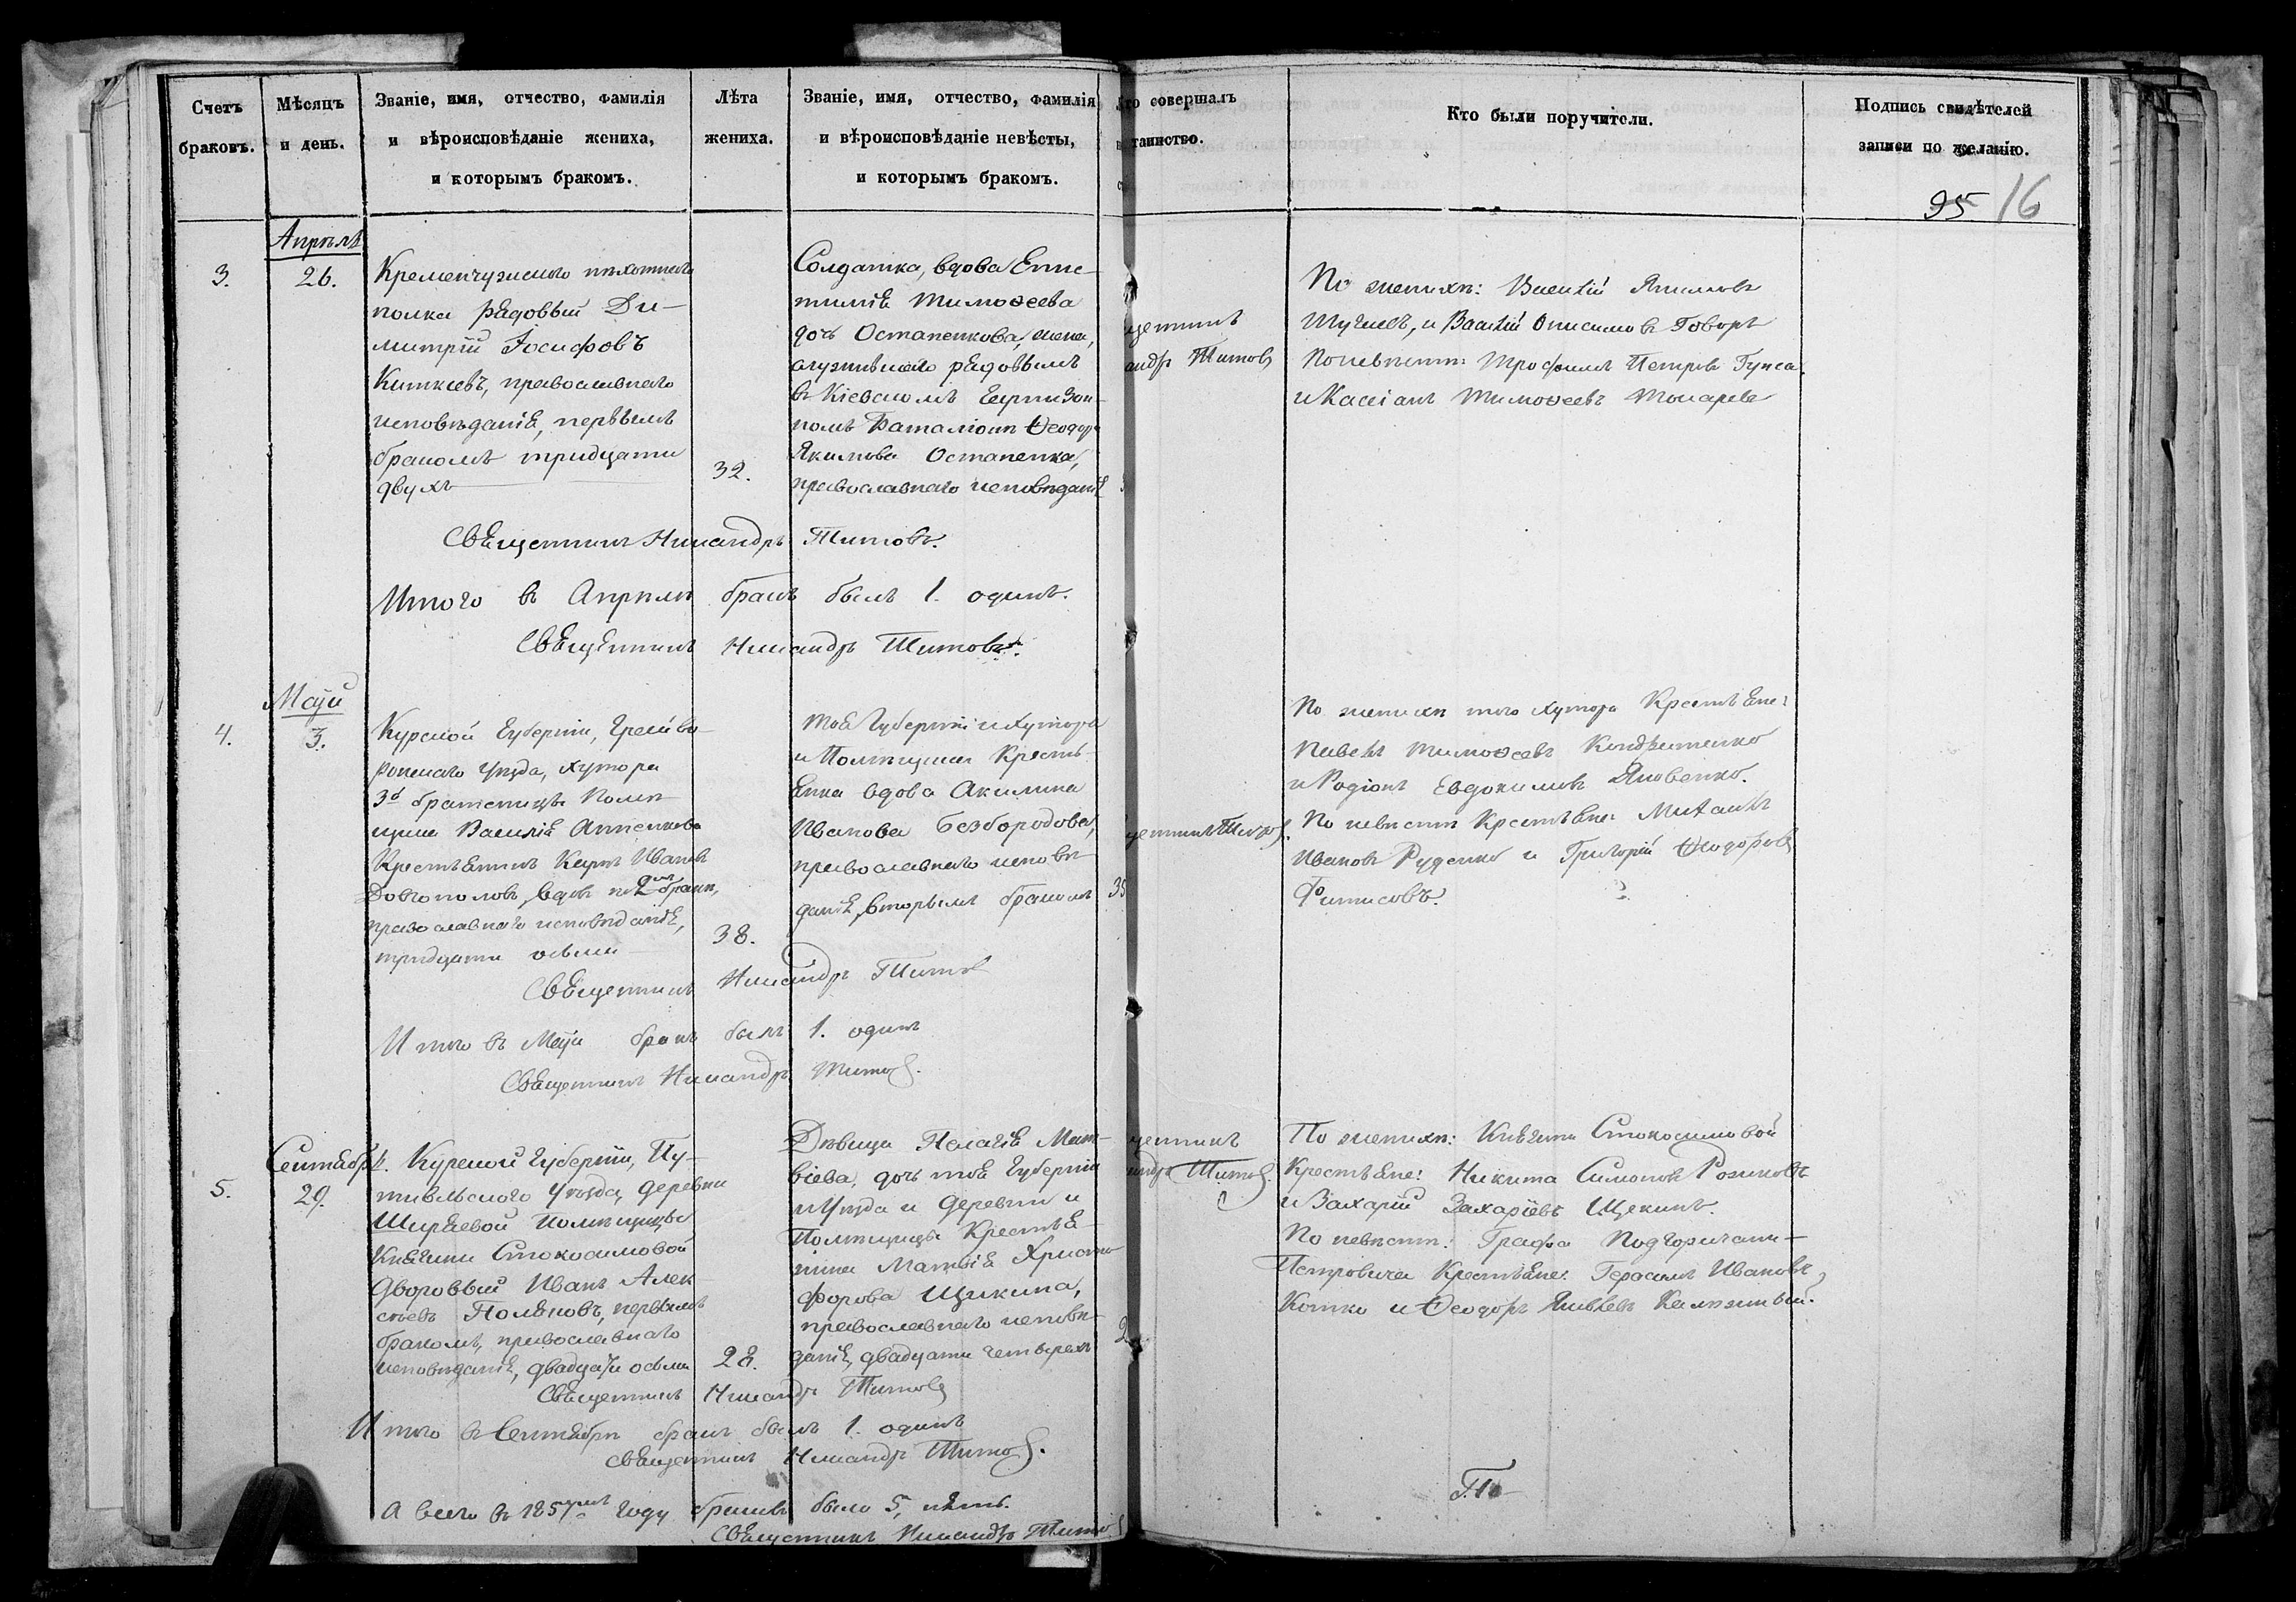 Счетъ
браковъ.
Мѣсяцъ
и день.
Званіе, имя, отчество, фамилія
и вѣроисповѣданіе жениха,
и которымъ бракомъ.
Лѣта
жениха.
Званіе, имя, отчество, фамилія
и вѣроисповѣданіе невѣсты,
и которымъ бракомъ.
Кто совершалъ
таинство.
Кто были поручители.
Подпись свидѣтелей
записи по желанію.
95 16
Апрѣль
3.
26.
Кременчугскаго пѣхотнаго
полка рядовый Ди-
митрій Іосифовъ
православнаго
исповѣданія, первымъ
бракомъ тридцати
двухъ
32.
Солдатка, вдова
Тимоѳеева
дочь Остапенкова, жена,
служившаго рядовымъ
въ Кіевскомъ Гарнизон-
номъ Баталіонѣ Ѳеодора
Якимова Остапенка,
православнаго исповѣданія
щенникъ
андръ Титовъ
По женихѣ: Василій Якимовъ
и Василій Онисимовъ Говоръ
По невѣстѣ: Трофимъ Петровъ
и Касіанъ Тимоѳеевъ
Священникъ Никандръ Титовъ.
Итого въ Апрѣлѣ бракъ былъ 1. одинъ.
Священникъ Никандръ Титовъ.
Маій
4.
3.
Курской Губерніи, Грайво-
ронскаго Уѣзда, хутора
братеницы Помѣ-
щика Василія Анненкова
Крестьянинъ Карпъ Ивановъ
Довгополовъ, вдовъ по 2мъ бракѣ,
православнаго исповѣданія,
тридцати осьми
38.
Тоя Губерніи и Хутора
и Помѣщика Кресть-
янка вдова Акилина
Иванова Безбородова,
православнаго исповѣ-
данія, вторымъ бракомъ
35
щенникъ Титовъ.
По женихѣ того хутора Крестьяне:
Павелъ Тимоѳеевъ Кондратенко
и Родіонъ Евдокимовъ Яковенко.
По невѣстѣ Крестьяне: Михаилъ
Ивановъ Руденко и Григорій Ѳеодоровъ
Фитисовъ.
Священникъ Никандръ Титовъ
Итого въ Маіи бракъ былъ 1. одинъ
Священникъ Никандръ Титовъ.
Сентябрь.
5.
29.
Курской Губерніи, Пу-
тивльскаго Уѣзда, деревни
Ширяевой Помѣщицы
Княгини Стокасимовой
дворовый Иванъ Алек-
сѣевъ Поляковъ, первымъ
бракомъ, православнаго
исповѣданія, двадцати осьми
28.
Дѣвица Пелагія Мат-
віева, дочь тоя Губерніи
и Уѣзда и деревни и
Помѣщицы Крестья-
нина Матвія Христо-
форова Щикина,
православнаго исповѣ-
данія, двадцати четырехъ
2
щенникъ
андръ Титовъ.
По женихѣ: Княгини Стокосимовой
Крестьяне: Никита Симоновъ
и Захарій Захаріевъ Щекинъ.
По невѣстѣ: Графа Подгоричани-
Петровича Крестьяне: Герасимъ Ивановъ
Котко и Ѳеодоръ
Священникъ Никандръ Титовъ
Итого въ Сентябрѣ бракъ былъ 1. одинъ
Священникъ Никандръ Титовъ.
А всего въ 1857мъ году браковъ было 5, пять.
Священникъ Никандръ Титовъ